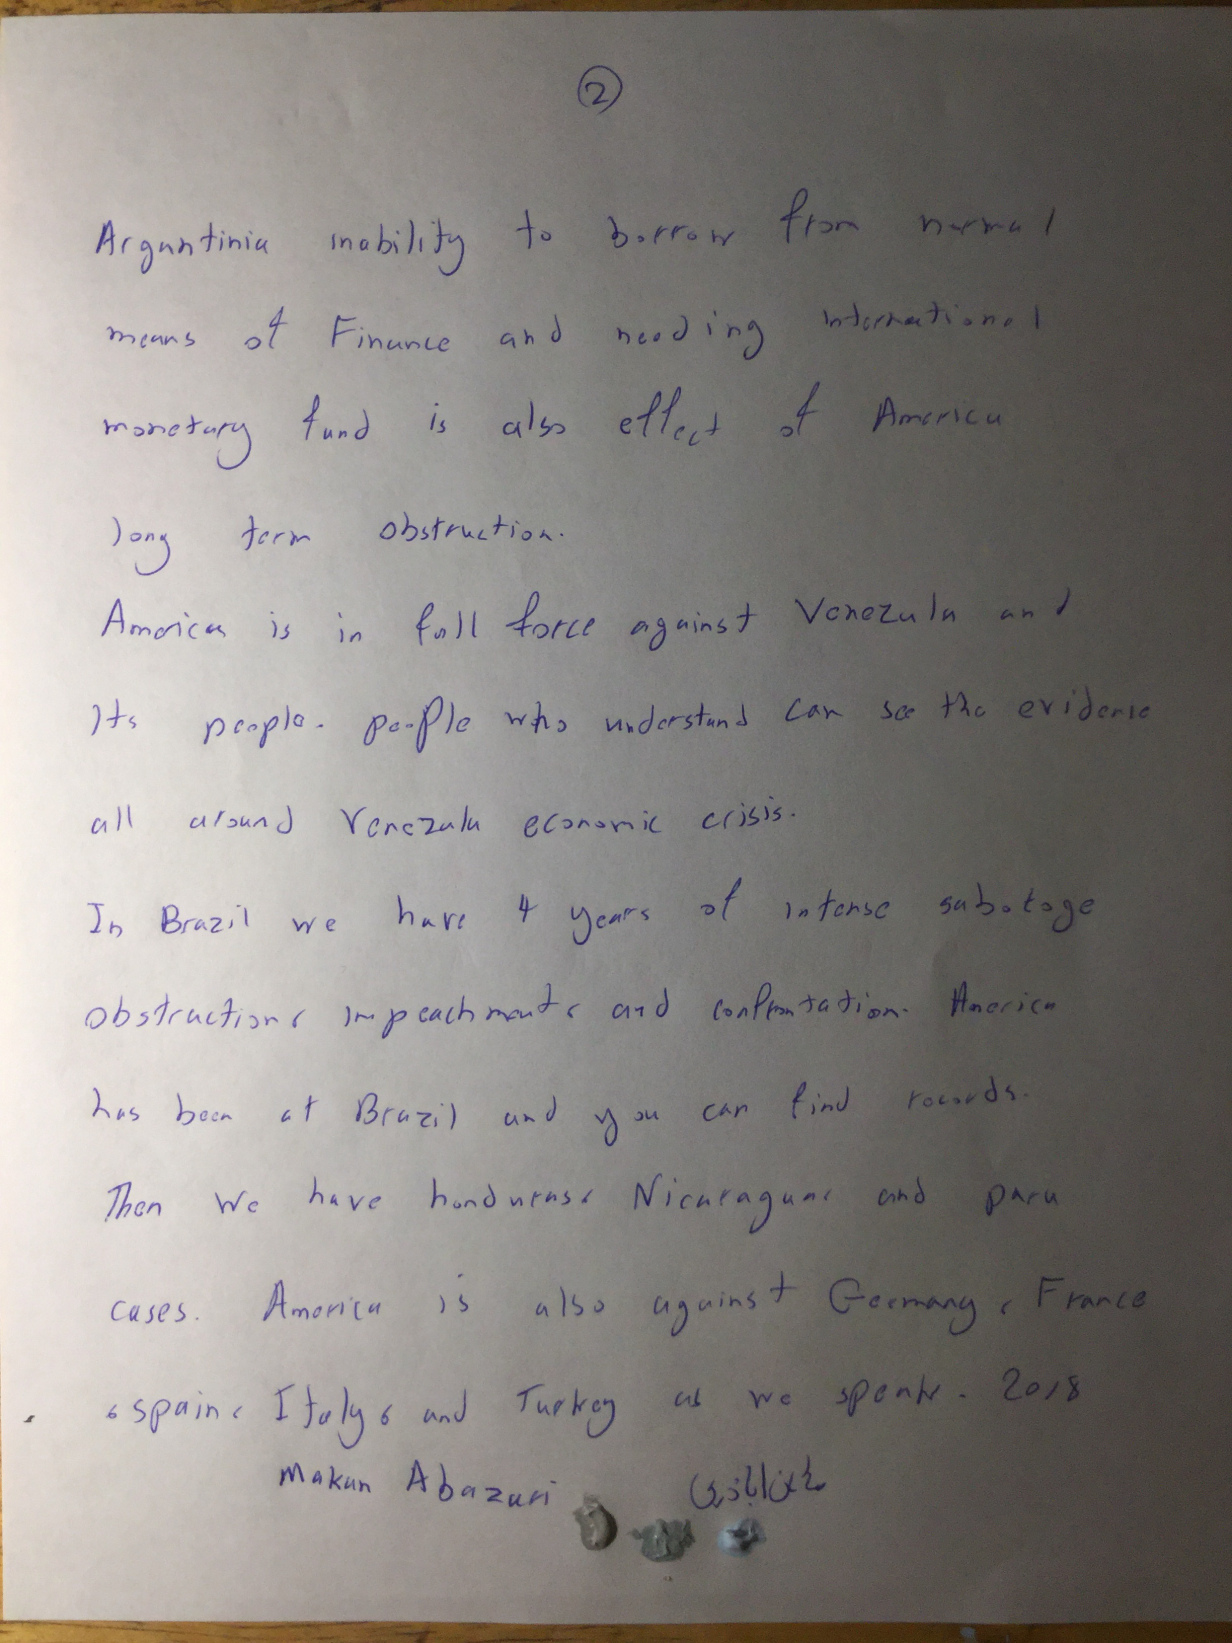 2
Arguntinia inability to borrow from normal
means of Finance and needing international
monetary fund is also effect of America
long term obstruction.
America is in full force against Venezula and
Its people. people who understand can see the evidence
all around Venezula economic crisis.
In Brazil we have 4 years of intense sabotage
obstruction, impeachment, and confrontation. America
has been at Brazil and you can find records.
Then we have honduras, Nicaragua, and paru
cases. America is also against Germany, France
, spain, Italy, and Turkey as we speak. 2018
Makan Abazari اباذری